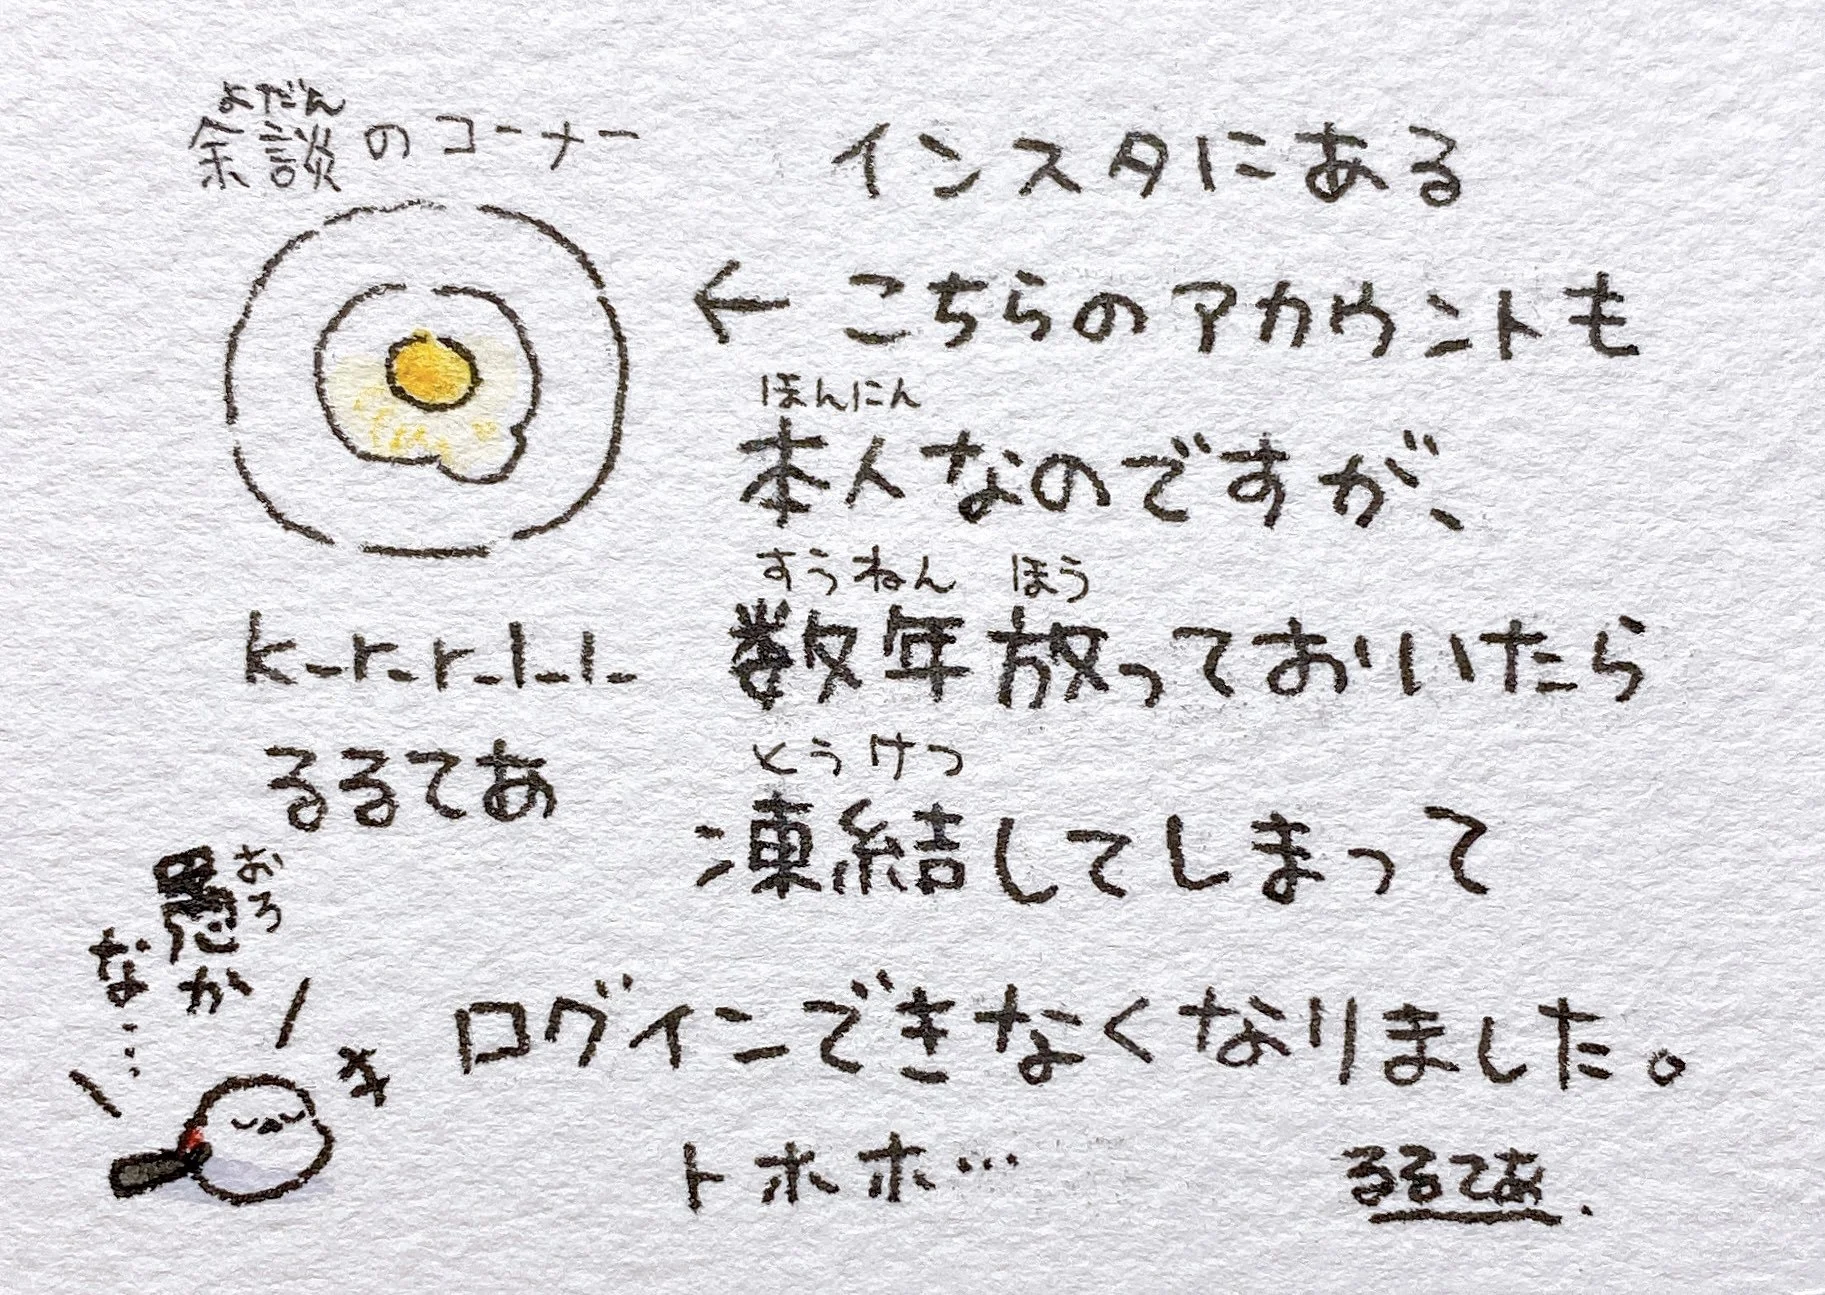 よだん
余談のコーナー
インスタにある
←こちらのアカウントも
ほんにん
本人なのですが、
すうねん ほう
数年放っておいたら
とうけつ
凍結してしまって
ログインできなくなりました。
トホホ…
るるてあ.
k_r_r_l_l_
るるてあ
おろ
愚か
な…